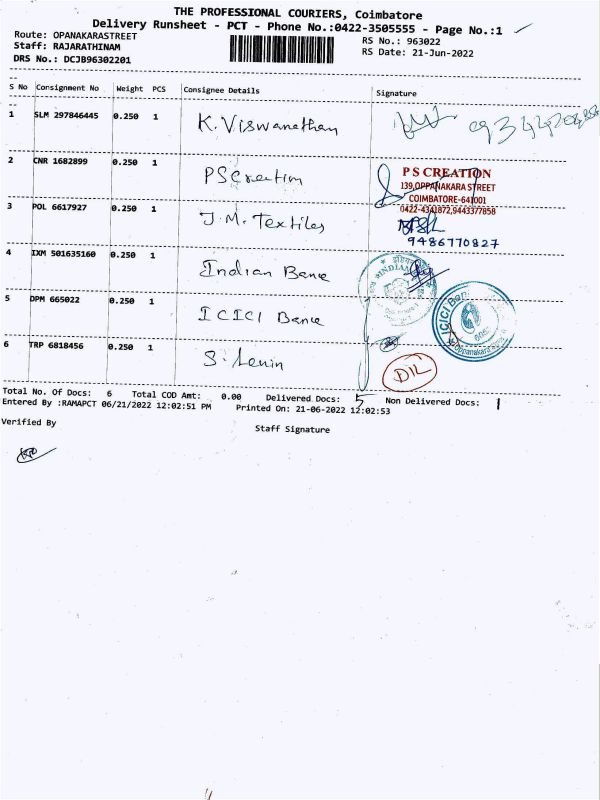 THE PROFESSIONAL COURIERS, Coimbatore
Delivery Runsheet - PCT - Phone No.:0422-3505555 - Page No.:1
Route: OPANAKARASTREET
RS No.: 963022
Staff: RAJARATHINAM
RS Date: 21-Jun-2022
DRS No.: DCJB96302201
S No Consignment No Weight PCS Consignee Details Signature
1 SLM 297846445 0.250 1 K. Viswanathan
2 CNR 1682899 0.250 1 PS Creation
P S CREATION
139,OPPANAKARA STREET
COIMBATORE-641001
0422-4341872,9443377858
3 POL 6617927 0.250 1 J.M. Textiles
9486770827
4 IXM 501635160 0.250 1 Indian Bank
INDIAN
5 DPM 665022 0.250 1 ICICI Bank
ICICI Ban
6 TRP 6818456 0.250 1 S. Lenin
D/L
Total No. Of Docs: 6 Total COD Amt: 0.00 Delivered Docs: 5 Non Delivered Docs: 1
Entered By :RAMAPCT 06/21/2022 12:02:51 PM Printed On: 21-06-2022 12:02:53
Verified By
Staff Signature